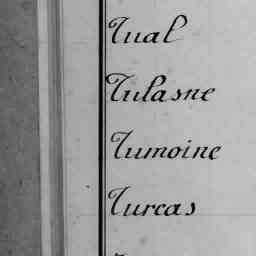 Tual
Tulasne
Tumoine
Turcas